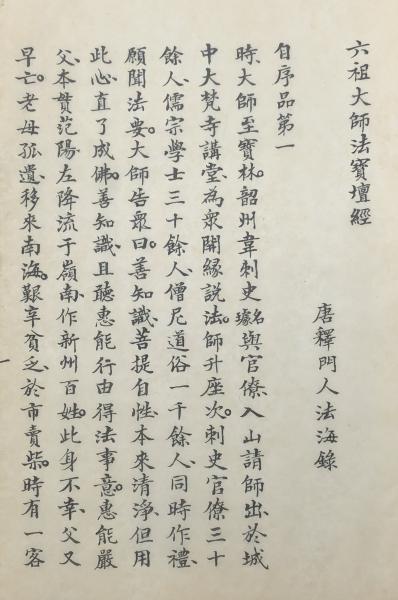 六祖大師法寶壇經
唐釋門人法海錄
自序品第一
時、大師至寶林。韶州韋刺史名璩與官僚、入山請師出、於城
中大梵寺講堂、為眾開緣說法。師升座次。刺史官僚三十
餘人、儒宗學士三十餘人、僧尼道俗一千餘人、同時作禮、
願聞法要。大師告眾曰。善知識、菩提自性、本來清淨、但用
此心、直了成佛。善知識、且聽惠能行由得法事意。惠能嚴
父、本貫范陽、左降流于嶺南、作新州百姓。此身不幸、父又
早亡。老母孤遺、移來南海。艱辛貧乏、於市賣柴。時有一客